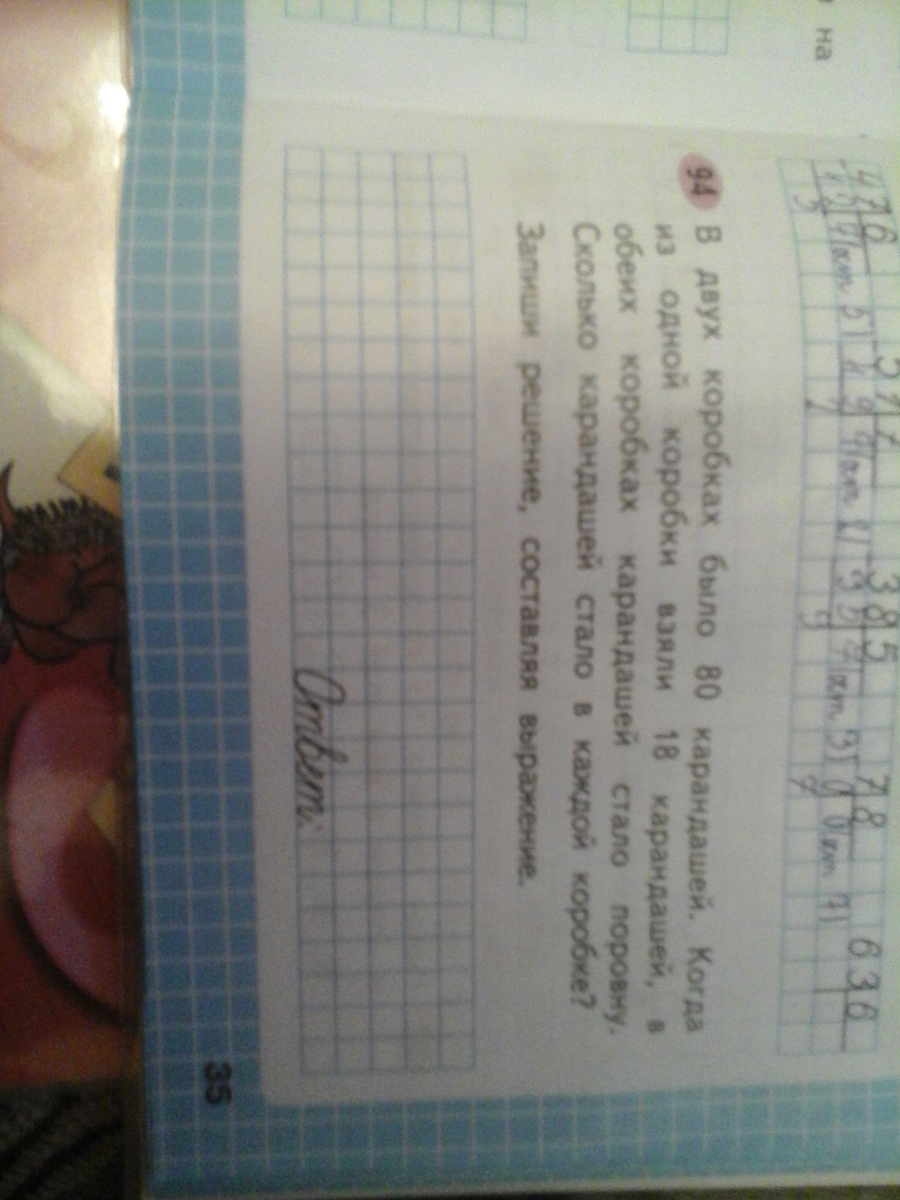 на
476 511 385 78 636
94 В двух коробках было 80 карандашей. Когда
из одной коробки взяли 18 карандашей, в
обеих коробках карандашей стало поровну.
Сколько карандашей стало в каждой коробке?
Запиши решение, составляя выражение.
Ответ:
35